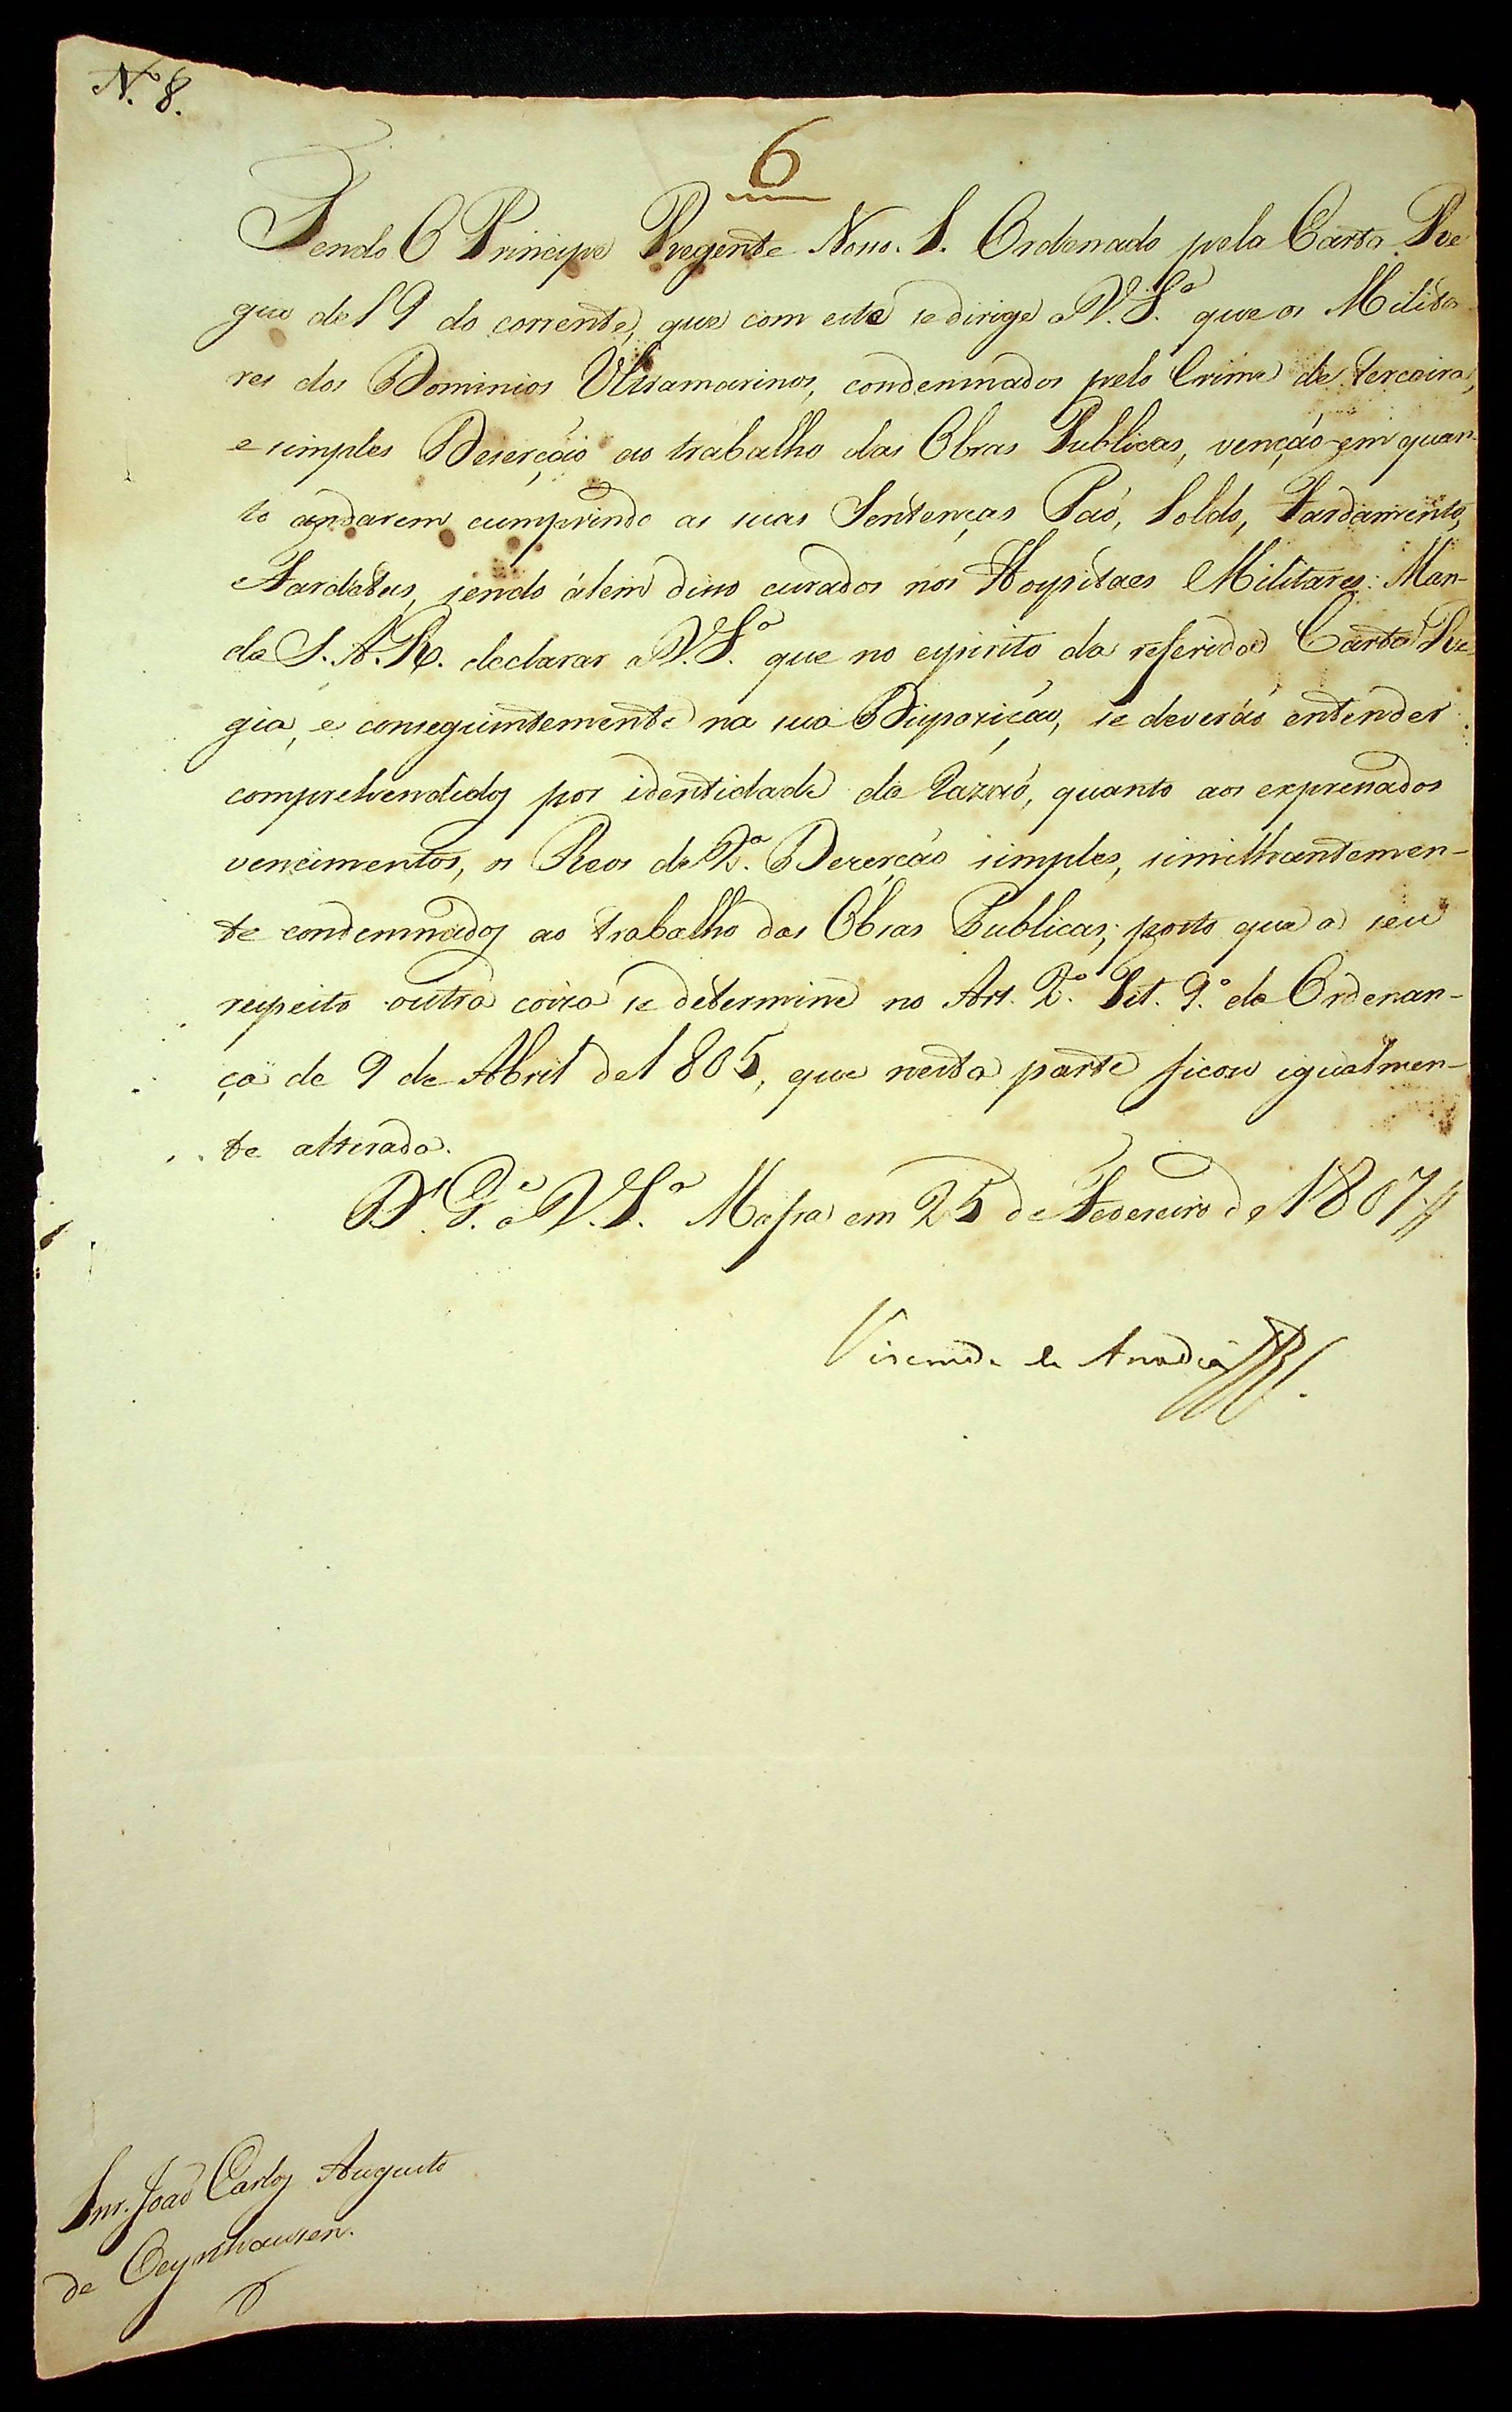 N.º 8.
6
Tendo O Principe Regente Nosso S. Ordenado pela Carta Re
gia de 19 do corrente, que com esta se dirige a V. S.ª que os Milita
res dos Dominios Ultramarinos, condemnados pelo Crime de terceira,
e simples Deserção ao trabalho das Obras Publicas, venção em quan-
to andarem cumprindo as suas Sentenças Paó, Soldo, Fardamento,
e Fardetas, sendo álem disso curados nos Hospitaes Militares: Man-
da S. A. R. declarar a V. S.ª que no espirito da referida Carta Re-
gia, e conseguintemente na sua Dispozição, se deveráó entender
comprehendidos por identidade de Razaó, quanto aos expressados
vencimentos, os Reos de 2.ª Dezerção simples, similhantemen-
te condemnados ao trabalho das Obras Publicas; posto que a seu
respeito outra coiza se determine no Art. 2.º Tit. 9.º da Ordenan-
ça de 9 de Abril de 1805, que nesta parte ficou igualmen-
te alterada.
D.s G.e a V. S.ª Mafra em 25 de Fevereiro de 1807
Visconde de Anadia
Snr. Joaó Carlos Augusto
de Oeynhausen.